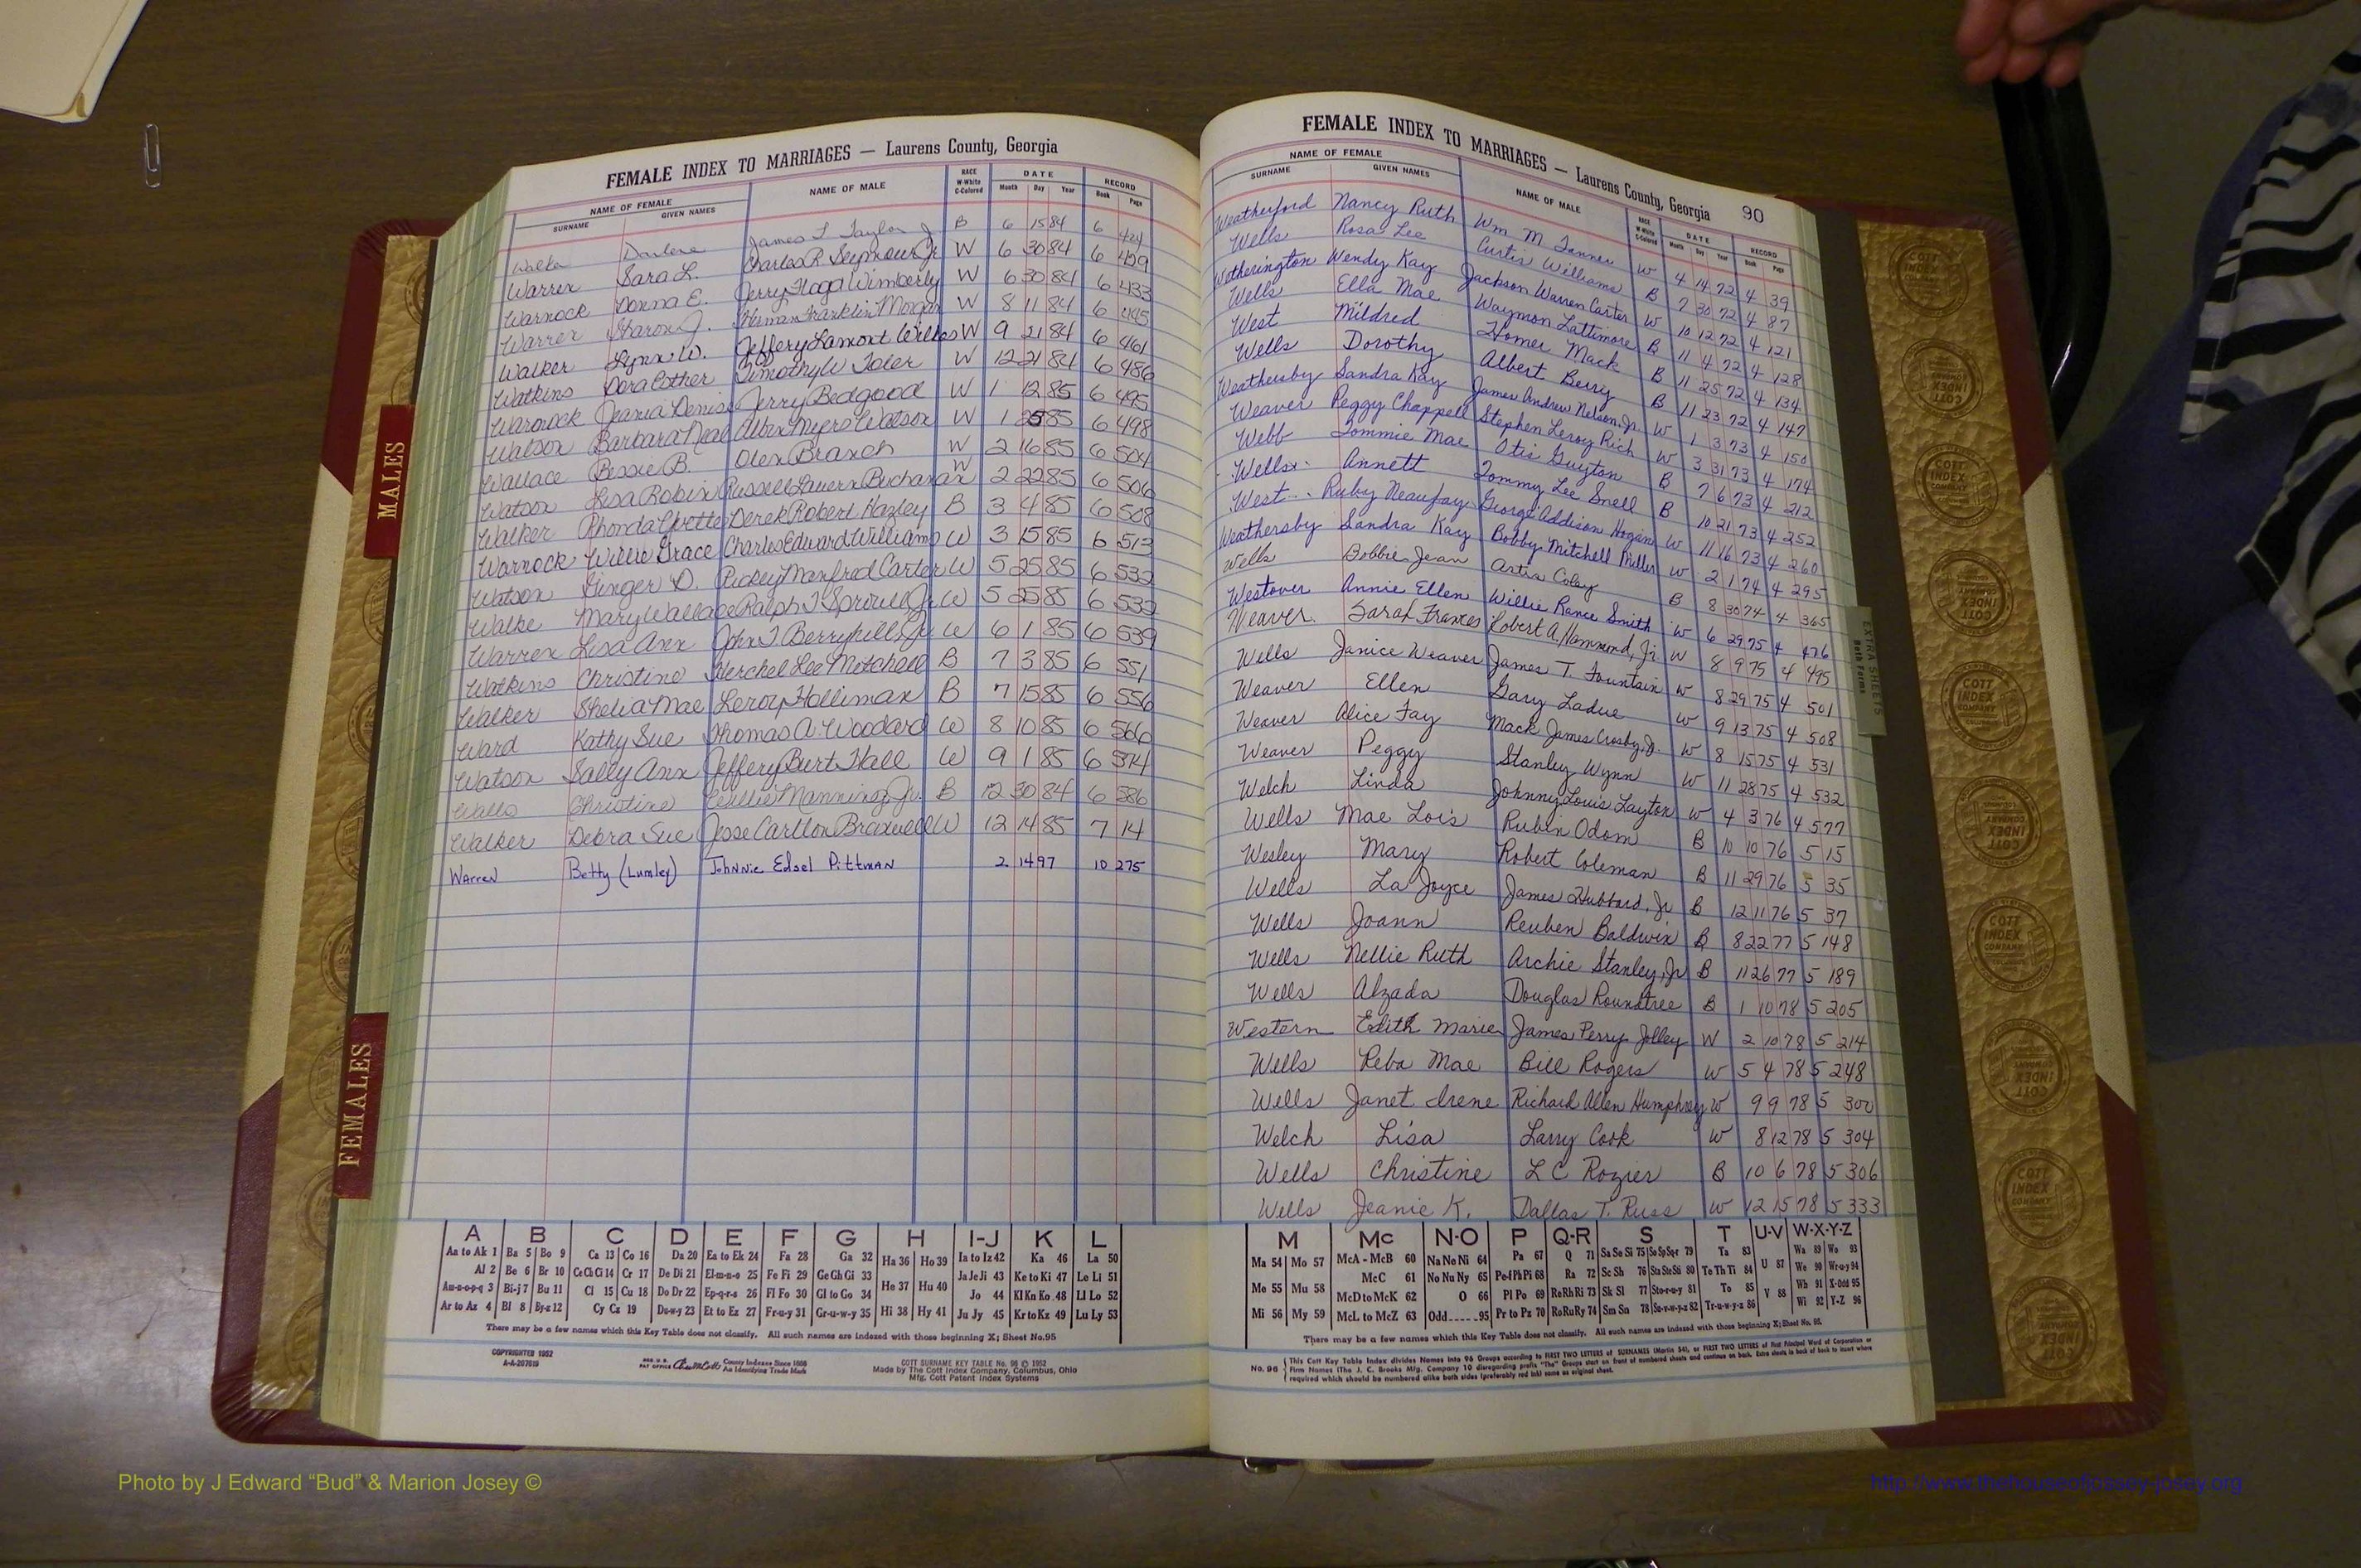 MALES
FEMALES
FEMALE INDEX TO MARRIAGES — Laurens County, Georgia
NAME OF FEMALE
SURNAME GIVEN NAMES NAME OF MALE RACE W-White C-Colored DATE Month Day Year RECORD Book Page
Darlene James T Taylor Jr B 6 15 84 6 424
Warren Sara L. Charles R. Seymour Jr W 6 30 84 6 429
Warnock Donna E. Jerry Wimberly W 6 30 84 6 433
Warren Sharon J. Herman Franklin Morgan W 8 11 84 6 445
Walker Lynn W. Jeffery Lamont Willes W 9 21 84 6 461
Watkins Dora Esther Timothy W Toler W 12 21 84 6 486
Warnock Jeania Denise Jerry Bedgood W 1 12 85 6 495
Watson Barbara Neal Albin Myers Watson W 1 25 85 6 498
Wallace Bessie B. Olen Branch W 2 16 85 6 504
Watson Lisa Robin Russell Lauern Buchanan W 2 22 85 6 506
Walker Rhonda Yvette Derek Robert Hazley B 3 4 85 6 508
Warnock Willie Grace Charles Edward Williams W 3 15 85 6 513
Watson Ginger D. Rickey Manfred Carter W 5 25 85 6 532
Walke Mary Wallace Ralph T Sprowell Jr. W 5 25 85 6 533
Warren Lisa Ann John T Berryhill Jr. W 6 1 85 6 539
Watkins Christine Herchel Lee Mitchell B 7 3 85 6 551
Walker Shelia Mae Leroy Holliman B 7 15 85 6 556
Ward Kathy Sue Thomas A. Woodard W 8 10 85 6 566
Watson Sally Ann Jeffery Burt Hall W 9 1 85 6 574
Christine Willie Manning, Jr. B 12 30 84 6 586
Walker Debra Sue Jesse Carlton Braswell W 12 14 85 7 14
Warren Betty (Lumley) Johnnie Edsel Pittman 2 14 97 10 275
A B C D E F G H I-J K L
Aa to Ak 1 Ba 5 Bo 9 Ca 13 Co 16 Da 20 Ea to Ek 24 Fa 28 Ga 32 Ha 36 Ho 39 Ia to Iz 42 Ka 46 La 50
Al 2 Be 6 Br 10 Ce Ch Ci 14 Cr 17 De Di 21 El-m-n-o 25 Fe Fi 29 Ge Gh Gi 33 He 37 Hu 40 Ja Je Ji 43 Ke to Ki 47 Le Li 51
Am-n-o-p-q 3 Bi-j 7 Bu 11 Cl 15 Cu 18 Do Dr 22 Ep-q-r-s 26 Fl Fo 30 Gl to Go 34 Hi 38 Hy 41 Jo 44 Kl Kn Ko 48 Ll Lo 52
Ar to Az 4 Bl 8 By-z 12 Cy Cz 19 Du-w-y 23 Et to Ez 27 Fr-u-y 31 Gr-u-w-y 35 Ju Jy 45 Kr to Kz 49 Lu Ly 53
There may be a few names which this Key Table does not classify. All such names are indexed with those beginning X; Sheet No.95
COPYRIGHTED 1952
REG. U.S. PAT OFFICE County Indexes Since 1888 An Identifying Trade Mark
COTT SURNAME KEY TABLE No. 96 © 1952
Made by The Cott Index Company, Columbus, Ohio
Mfg. Cott Patent Index Systems
FEMALE INDEX TO MARRIAGES — Laurens County, Georgia 90
NAME OF FEMALE
SURNAME GIVEN NAMES NAME OF MALE RACE W-White C-Colored DATE Month Day Year RECORD Book Page
Weatherford Nancy Ruth Wm M Tanner W 4 14 72 4 39
Wells Rosa Lee Curtis Williams B 7 30 72 4 87
Wetherington Wendy Kay Jackson Warren Carter W 10 12 72 4 121
Wells Ella Mae Waymon Lattimore B 11 4 72 4 128
West Mildred Homer Mack B 11 25 72 4 134
Wells Dorothy Albert Berry B 11 23 72 4 147
Weathersby Sandra Kay James Andrew Nelson, Jr. W 1 3 73 4 150
Weaver Peggy Chappell Stephen Leroy Rich W 3 31 73 4 174
Webb Tommie Mae Otis Guyton B 7 6 73 4 212
Wells Annett Tommy Lee Snell B 10 21 73 4 252
West Ruby Neaufay George Addison Hogan W 11 16 73 4 260
Weathersby Sandra Kay Bobby Mitchell Miller W 2 1 74 4 295
Wells Bobbie Jean Artis Coley B 8 30 74 4 365
Westover Annie Ellen Willie Rance Smith W 6 29 75 4 476
Weaver Sarah Frances Robert A. Hammond, Jr W 8 9 75 4 495
Wells Janice Weaver James T. Fountain W 8 29 75 4 501
Weaver Ellen Gary Ladue W 9 13 75 4 508
Weaver Alice Fay Mack James Crosby, Jr. W 8 15 75 4 531
Weaver Peggy Stanley Wynn W 11 28 75 4 532
Welch Linda Johnny Louis Layton W 4 3 76 4 577
Wells Mae Lois Rubin Odom B 10 10 76 5 15
Wesley Mary Robert Coleman B 11 29 76 5 35
Wells La Joyce James Hubbard, Jr B 12 11 76 5 37
Wells Joann Reuben Baldwin B 8 22 77 5 148
Wells Nellie Ruth Archie Stanley, Jr B 11 26 77 5 189
Wells Alzada Douglas Roundtree B 1 10 78 5 205
Western Edith Marie James Perry Jolley W 2 10 78 5 214
Wells Reba Mae Bill Rogers W 5 4 78 5 248
Wells Janet Irene Richard Allen Humphrey W 9 9 78 5 300
Welch Lisa Larry Cook W 8 12 78 5 304
Wells Christine L C Rozier B 10 6 78 5 306
Wells Jeanie K. Dallas T. Russ W 12 15 78 5 333
M Mc N-O P Q-R S T U-V W-X-Y-Z
Ma 54 Mo 57 McA - McB 60 Na Ne Ni 64 Pa 67 Q 71 Sa Se Si 75 So Sp Sq-r 79 Ta 83 U 87 Wa 89 Wo 93
Me 55 Mu 58 McC 61 No Nu Ny 65 Pe-f Ph Pi 68 Ra 72 Sc Sh 76 Sta Ste Sti 80 Te Th Ti 84 V 88 We 90 Wr-u-y 94
Mi 56 My 59 McD to McK 62 O 66 Pl Po 69 Re Rh Ri 73 Sk Sl 77 Sto-r-u-y 81 To 85 Wh 91 X-Odd 95
McL to McZ 63 Odd 95 Pr to Pz 70 Ro Ru Ry 74 Sm Sn 78 Su-v-w-y-z 82 Tr-u-w-y-z 86 Wi 92 Y-Z 96
There may be a few names which this Key Table does not classify. All such names are indexed with those beginning X; Sheet No. 95.
No. 96 This Cott Key Table Index divides Names into 96 Groups according to FIRST TWO LETTERS of SURNAMES (Martin 54), or FIRST TWO LETTERS of First Principal Word of Corporation or
Firm Names (The J. C. Brooks Mfg. Company 10 disregarding prefix "The" Groups start on front of numbered sheets and continue on back. Extra sheets in back of book to insert where
required which should be numbered alike both sides (preferably red ink) same as original sheet.
EXTRA SHEETS
Both Forms
COTT INDEX COMPANY
Photo by J Edward “Bud” & Marion Josey ©
http://www.thehouseofjossey-josey.org